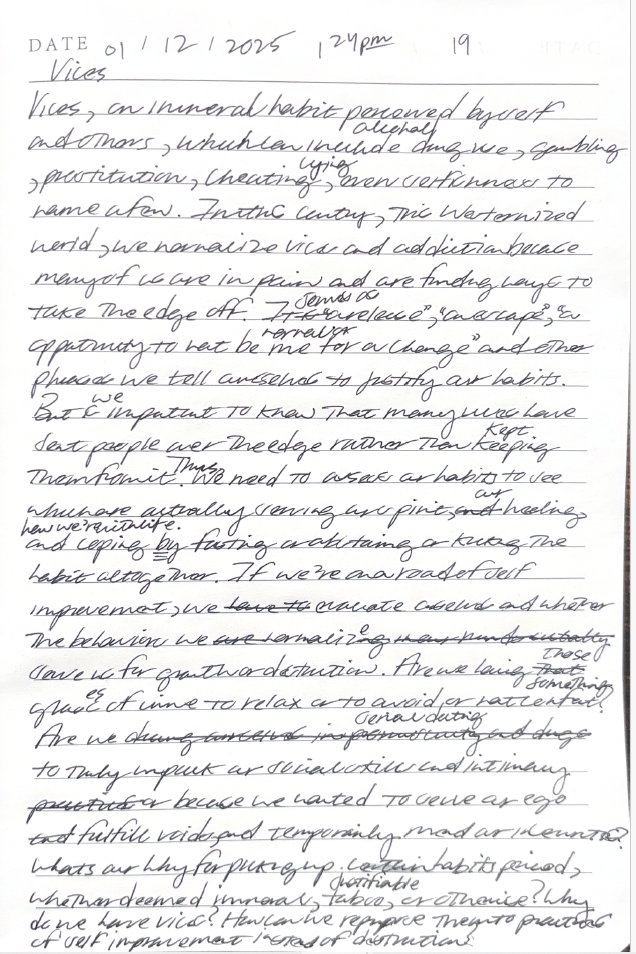 DATE 01 / 12 / 2025 1:24pm 19
Vices
Vices, an immoral habit perceived by self
alcohol,
and others, which can include drug use, gambling
lying
, prostitution, cheating, even selfishness to
name a few. In this century, this Westernized
world, we normalize vices and addiction because
many of us are in pain and are finding ways to
sends as
take the edge off. It's "a release", "an escape", "a
opportunity to not be me for a change" and other
phrases we tell ourselves to justify our habits.
we
But is important to know that many vices have
Kept
sent people over the edge rather than keeping
Thus
them from it. We need to assess our habits to see
our
which are actually serving our spirit, and healing,
how we're in this life.
and coping by fasting or abstaining or kicking the
habit altogether. If we're on a road of self
improvement, we have to evaluate ourselves and whether
the behaviors we are normalizing in our minds actually
those
serve us for growth or destruction. Are we using that
es something
glass of wine to relax or to avoid or not confront?
serial dating
Are we doing ourselves in promiscuity and drugs
to truly impact our social skills and intimacy
practices or because we wanted to serve our ego
and fulfill voids, and temporarily mend our insecurities?
Whats our why for picking up certain habits period,
justifiable
whether deemed immoral, taboo, or otherwise? Why
do we have vices? How can we repurpose them to practices
of self improvement instead of destruction.